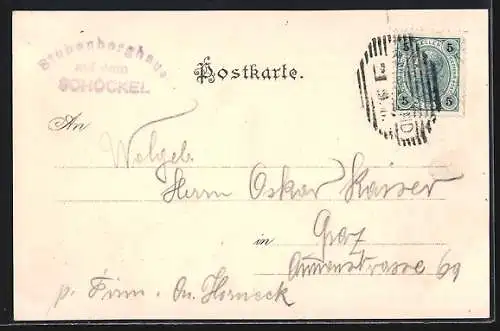 Stubenberghaus
auf dem
SCHÖCKEL
Postkarte.
5 5
5 5
An
Wolgeb.
Herrn Oskar Kaiser
in Graz
Annenstrasse 69
p. Firm. On. Horneck